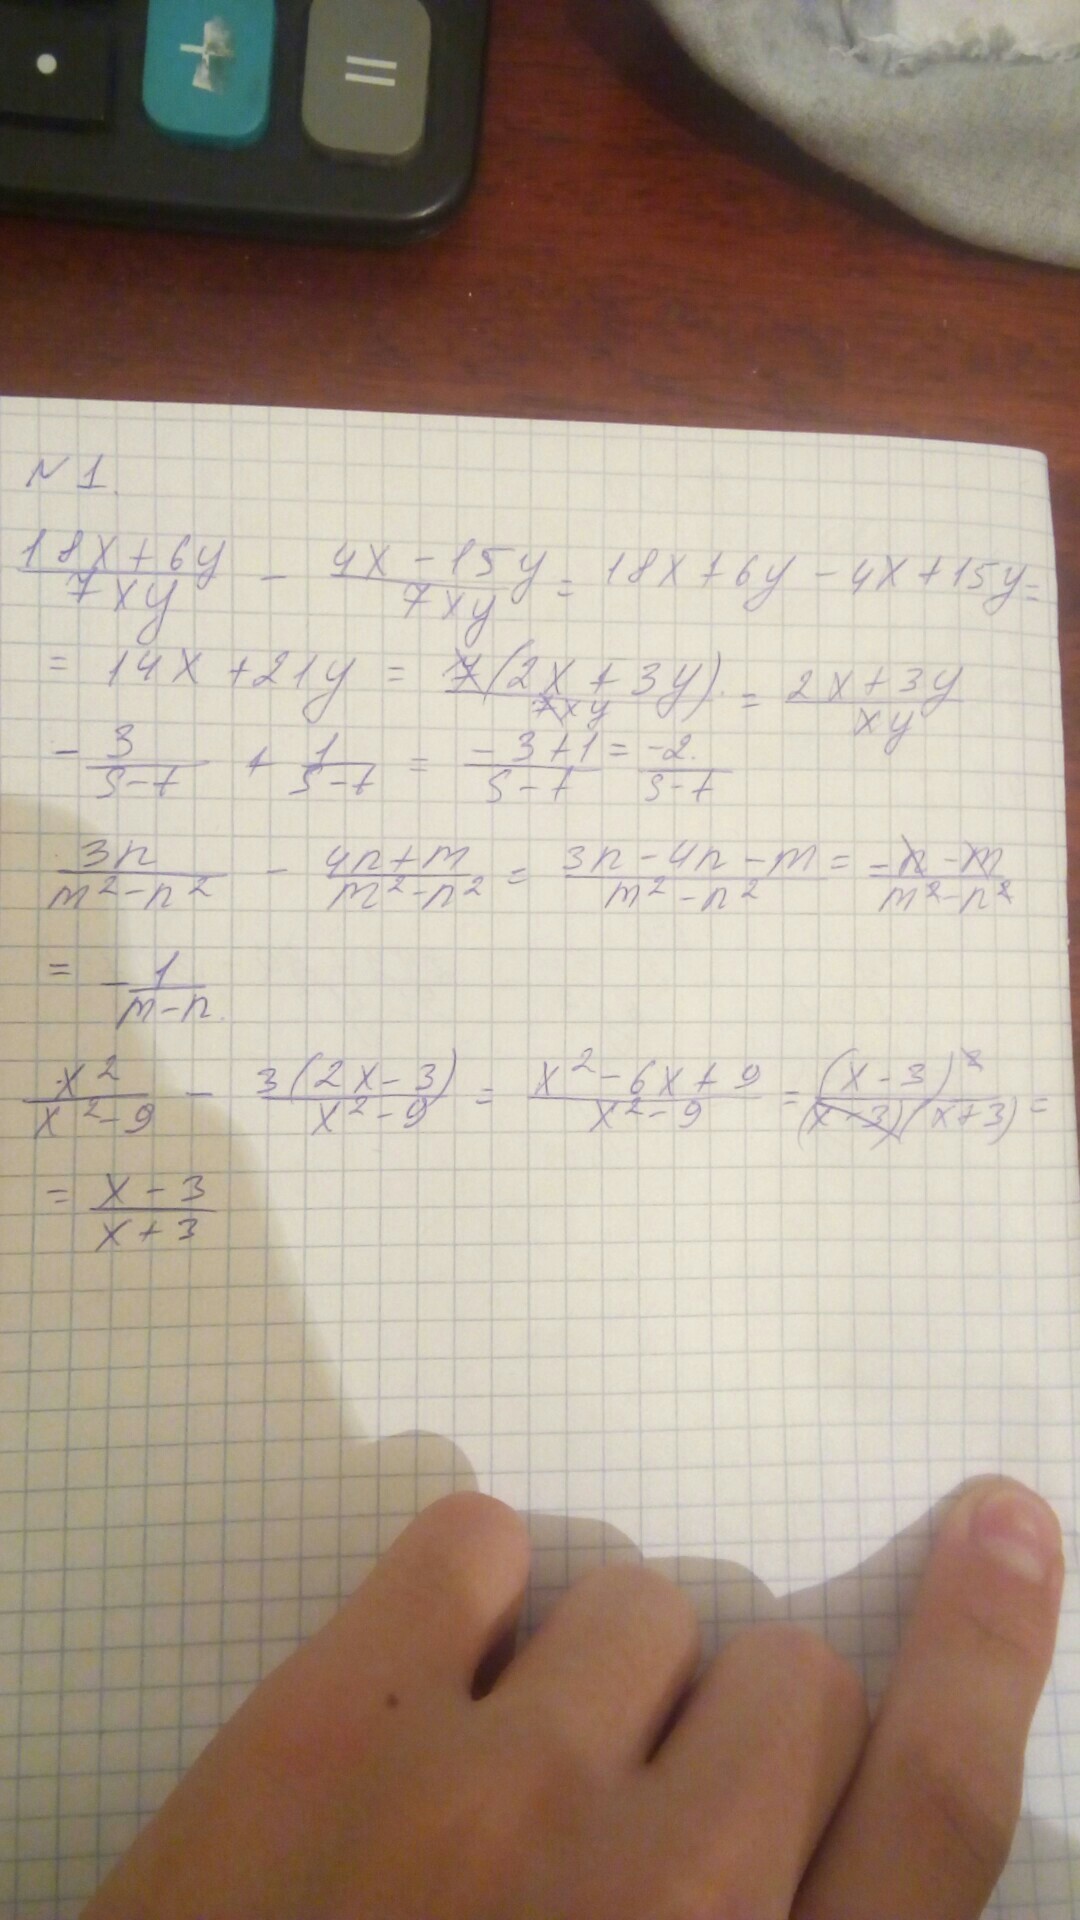 N 1.
(18x+6y)/(7xy) - (4x-15y)/(7xy) = 18x+6y-4x+15y=
= 14x+21y = 7(2x+3y)/(7xy) = (2x+3y)/(xy)
-3/(s-t) + 1/(s-t) = (-3+1)/(s-t) = -2/(s-t)
3n/(m²-n²) - (4n+m)/(m²-n²) = (3n-4n-m)/(m²-n²) = (-n-m)/(m²-n²)
= -1/(m-n)
x²/(x²-9) - 3(2x-3)/(x²-9) = (x²-6x+9)/(x²-9) = (x-3)²/((x-3)(x+3)) =
= (x-3)/(x+3)